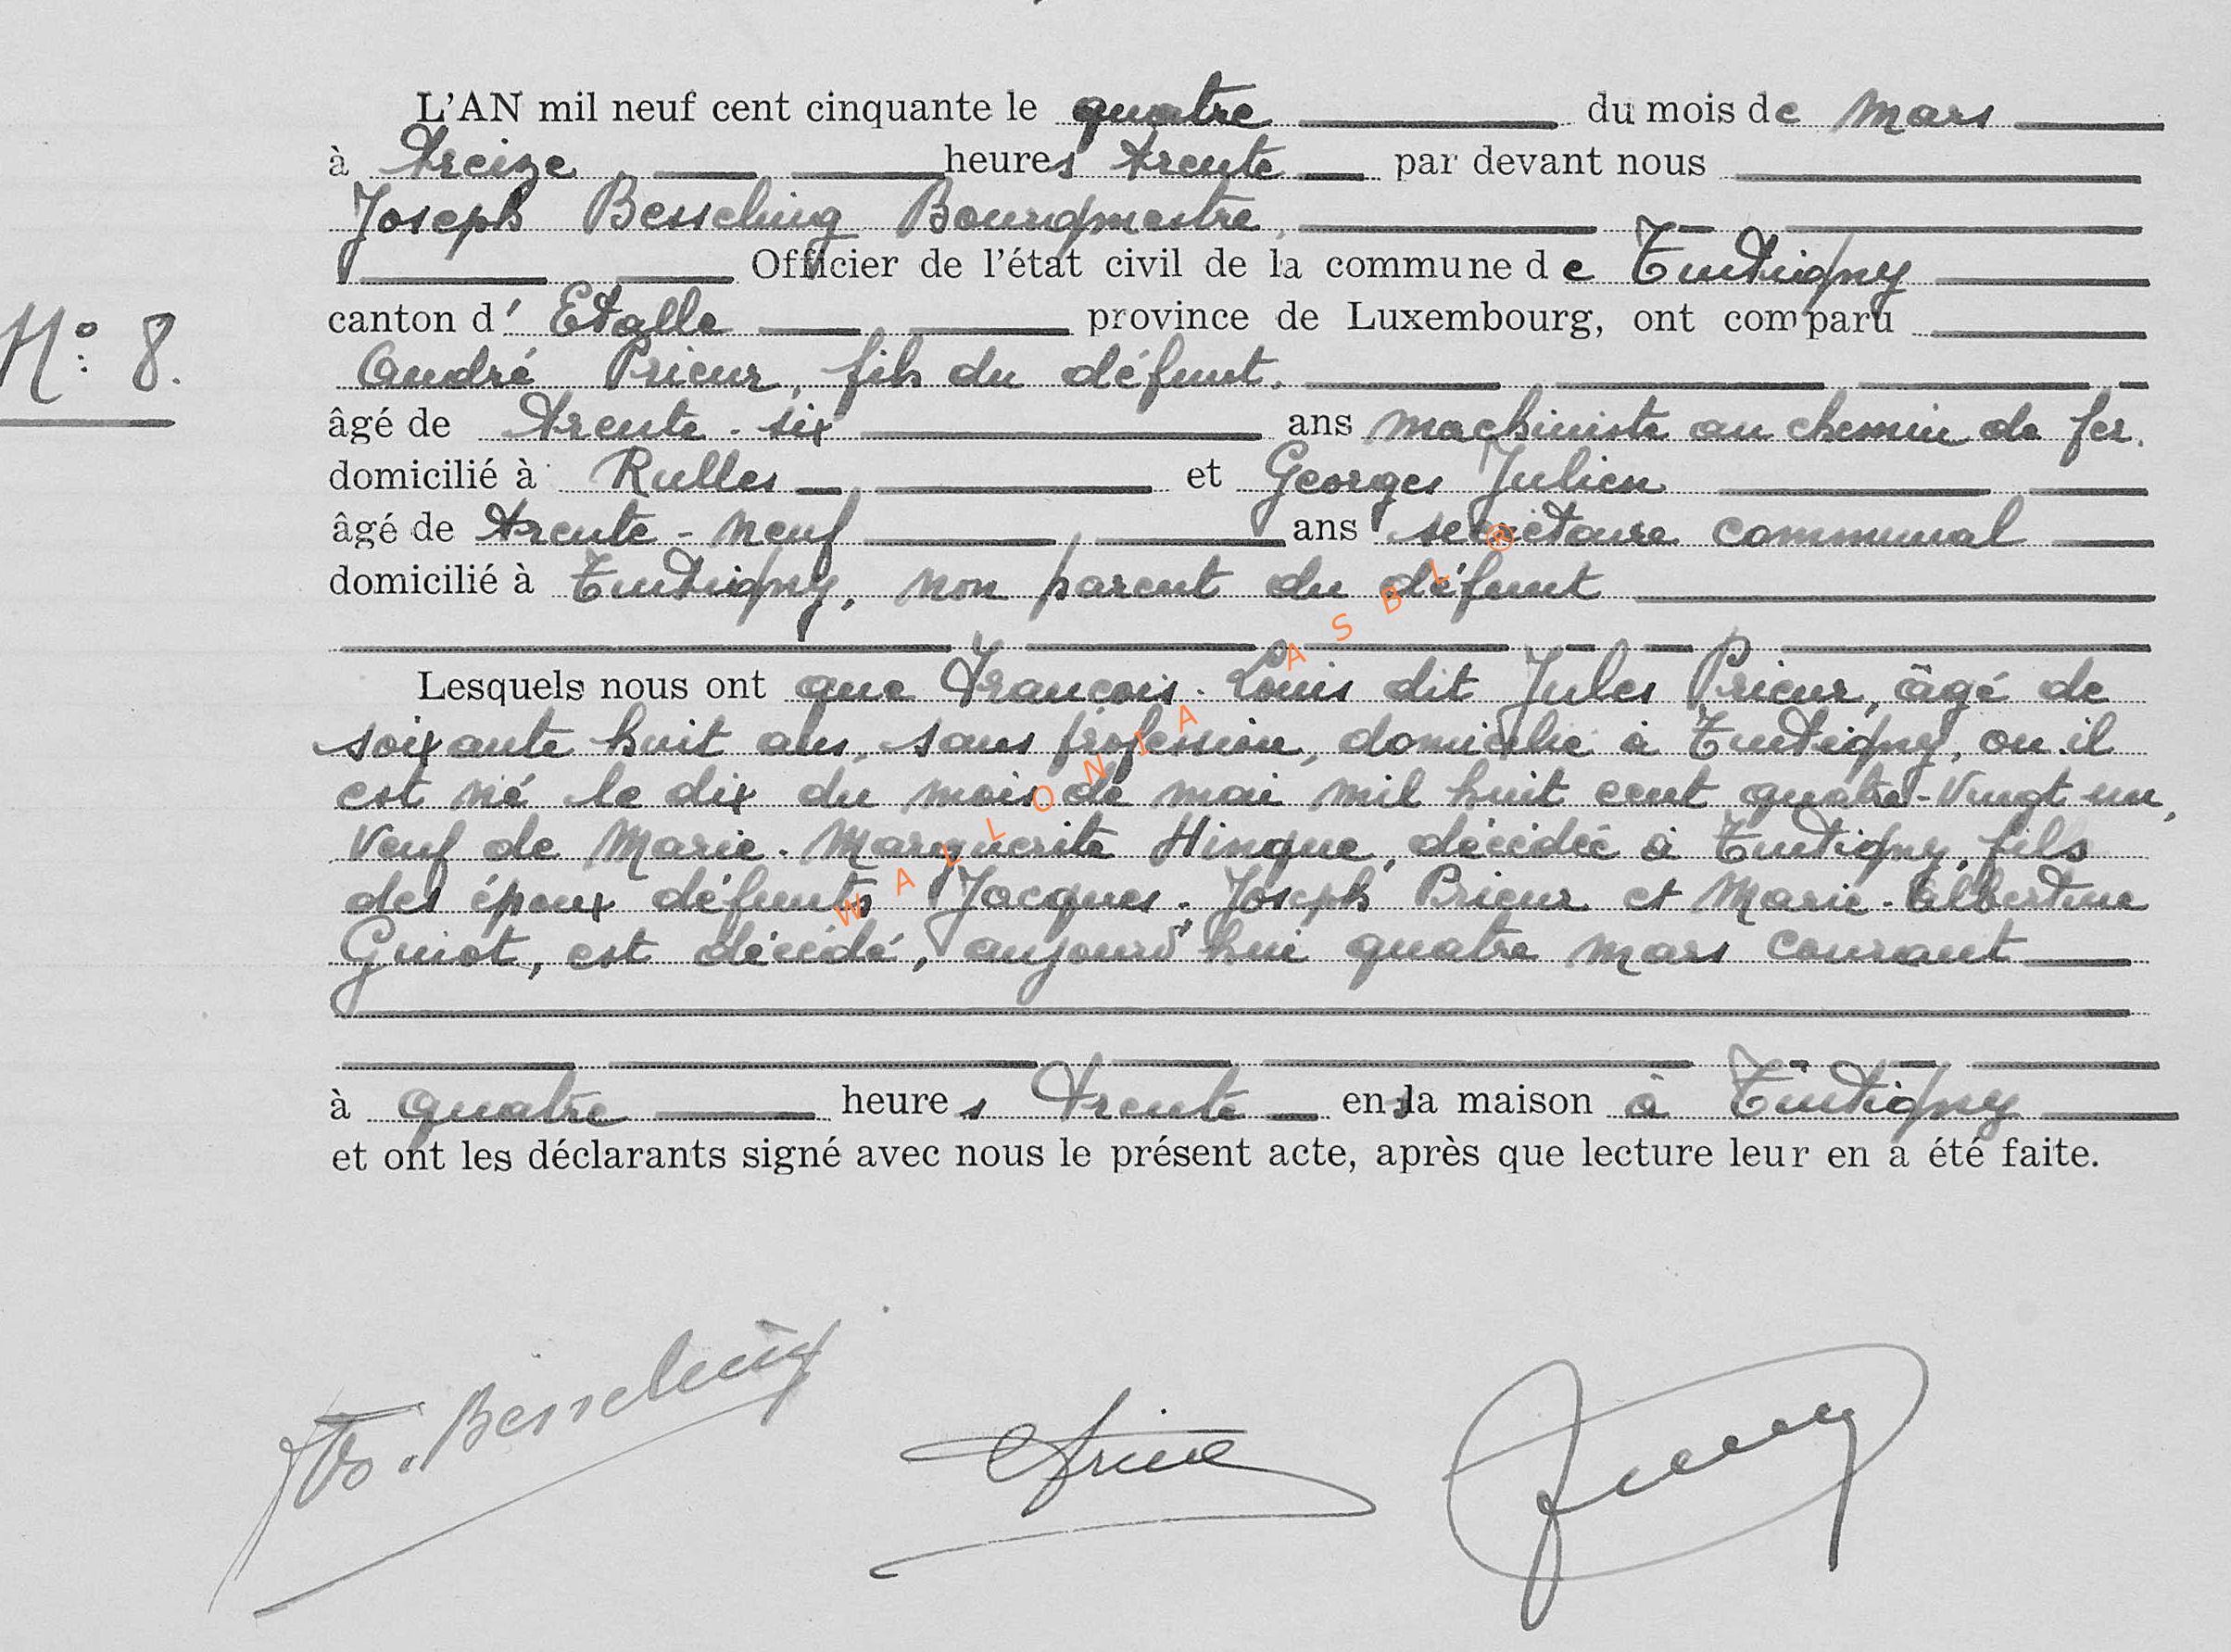 L'AN mil neuf cent cinquante le quatre du mois de mars
à treize heures trente par devant nous
Joseph Bessching Bourgmestre,
Officier de l'état civil de la commune de Tintigny
canton d' Etalle province de Luxembourg, ont comparu
N° 8.
André Prieur, fils du défunt.
âgé de trente-six ans machiniste au chemin de fer.
domicilié à Rulles et Georges Julien
âgé de trente-neuf ans secrétaire communal
domicilié à Tintigny, non parent du défunt
Lesquels nous ont que François-Louis dit Jules Prieur, âgé de
soixante huit ans, sans profession, domicilié à Tintigny, ou il
est né le dix du mois de mai mil huit cent quatre-vingt-un,
veuf de Marie-Marguerite Hinque, décédée à Tintigny, fils
des époux défunts Jacques-Joseph Prieur et Marie-Albertine
Guiot, est décédé, aujourd'hui quatre mars courant
à quatre heures trente en la maison à Tintigny
et ont les déclarants signé avec nous le présent acte, après que lecture leur en a été faite.
Jos. Bessching
WALLONIA ASBL ®